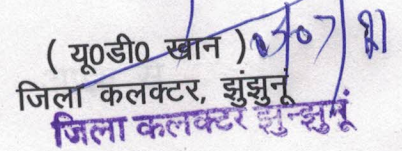 ( यू0डी0 खान )
जिला कलक्टर, झुंझुनू
जिला कलक्टर झुन्झुनूं